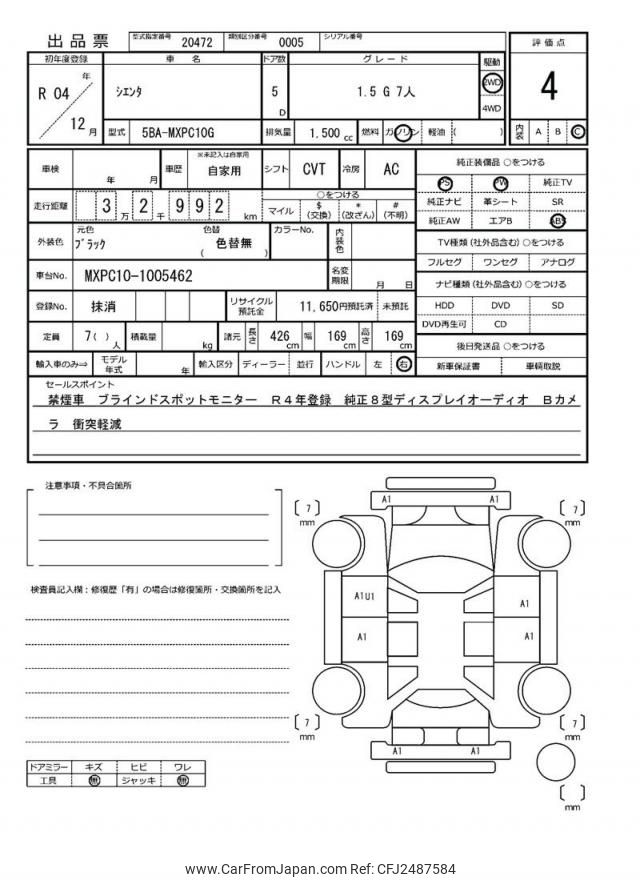 出品票 型式指定番号 20472 類別区分番号 0005 シリアル番号
初年度登録 車名 ドア数 グレード 駆動 評価点
R 04 年 12 月 シエンタ 5 D 1.5 G 7人 2WD 4WD 4
型式 5BA-MXPC10G 排気量 1,500 cc 燃料 ガソリン 軽油 ( ) 内装 A B C
車検 年 月 車歴 ※未記入は自家用 自家用 シフト CVT 冷房 AC 純正装備品 ○をつける
PS PW 純正TV
走行距離 3 万 2 千 9 9 2 km ○をつける
マイル $ (交換) * (改ざん) # (不明) 純正ナビ 革シート SR
純正AW エアB ABS
外装色 元色 ブラック 色替 色替無 ( ) カラーNo. 内装色 TV種類 (社外品含む) ○をつける
フルセグ ワンセグ アナログ
車台No. MXPC10-1005462 名変期限 月 日 ナビ種類 (社外品含む) ○をつける
登録No. 抹消 リサイクル預託金 11,650円預託済 未預託 HDD DVD SD
DVD再生可 CD
定員 7( ) 人 積載量 kg 諸元 長さ 426 cm 幅 169 cm 高さ 169 cm 後日発送品 ○をつける
輸入車のみ⇒ モデル年式 年 輸入区分 ディーラー 並行 ハンドル 左 右 新車保証書 車輌取説
セールスポイント
禁煙車 ブラインドスポットモニター R4年登録 純正8型ディスプレイオーディオ Bカメ
ラ 衝突軽減
注意事項・不具合箇所
検査員記入欄：修復歴「有」の場合は修復箇所・交換箇所を記入
A1 A1
7 mm 7 mm
A1U1 A1
A1 A1
7 mm 7 mm
A1 A1
mm
ドアミラー キズ ヒビ ワレ
工具 無 ジャッキ 無
www.CarFromJapan.com Ref: CFJ2487584